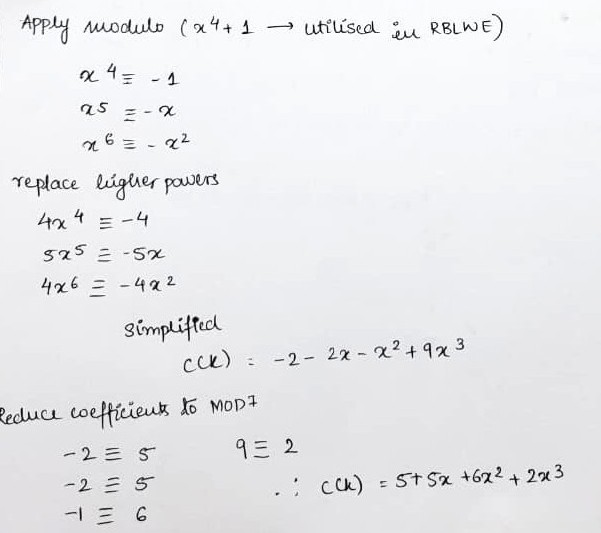 Apply modulo (x⁴+1 → utilised in RBLWE)
x⁴ ≡ -1
x⁵ ≡ -x
x⁶ ≡ -x²
replace higher powers
4x⁴ ≡ -4
5x⁵ ≡ -5x
4x⁶ ≡ -4x²
simplified
c(k) = -2 - 2x - x² + 9x³
Reduce coefficients to MOD7
-2 ≡ 5 9 ≡ 2
-2 ≡ 5
-1 ≡ 6
∴ c(k) = 5+5x+6x²+2x³